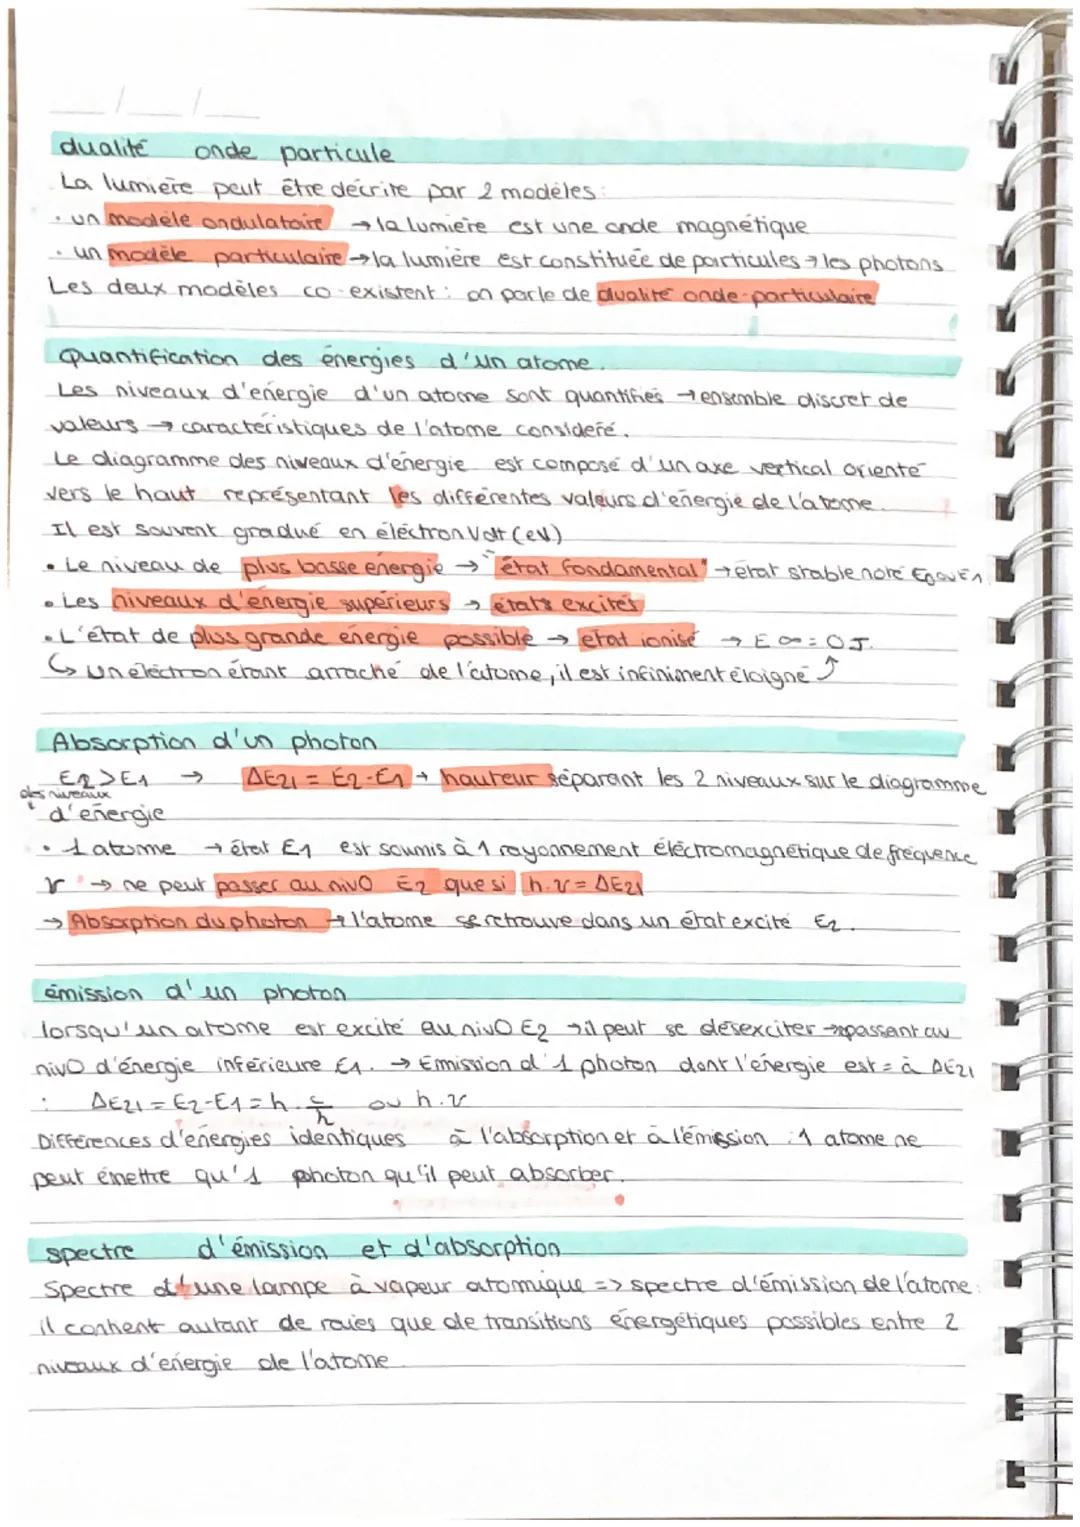 dualité onde particule
La lumière peut être décrite par 2 modèles :
• un modèle ondulatoire → la lumière est une onde magnétique
• un modèle particulaire → la lumière est constituée de particules → les photons
Les deux modèles co-existent : on parle de dualité onde-particulaire
Quantification des énergies d'un atome.
Les niveaux d'énergie d'un atome sont quantifiés → ensemble discret de
valeurs → caractéristiques de l'atome considéré.
Le diagramme des niveaux d'énergie est composé d'un axe vertical orienté
vers le haut représentant les différentes valeurs d'énergie de l'atome.
Il est souvent gradué en électronVolt (eV)
• Le niveau de plus basse énergie → "état fondamental" → état stable noté E0 ou E1
• Les niveaux d'énergie supérieurs → états excités
• L'état de plus grande énergie possible → état ionisé → E∞ = 0 J.
↳ un électron étant arraché de l'atome, il est infiniment éloigné ↑
Absorption d'un photon
E2 > E1 → ΔE21 = E2-E1 → hauteur séparant les 2 niveaux sur le diagramme
des niveaux
d'énergie
• 1 atome → état E1 est soumis à 1 rayonnement électromagnétique de fréquence
ν → ne peut passer au nivO E2 que si h.ν = ΔE21
→ Absorption du photon → l'atome se retrouve dans un état excité E2.
émission d'un photon
lorsqu'un atome est excité au nivO E2 → il peut se désexciter → passant au
nivO d'énergie inférieure E1. → Emission d'1 photon dont l'énergie est = à ΔE21
: ΔE21 = E2-E1 = h . c/λ ou h.ν
Différences d'énergies identiques à l'absorption et à l'émission : 1 atome ne
peut émettre qu'1 photon qu'il peut absorber.
spectre d'émission et d'absorption
Spectre d'une lampe à vapeur atomique => spectre d'émission de l'atome :
il contient autant de raies que de transitions énergétiques possibles entre 2
niveaux d'énergie de l'atome.